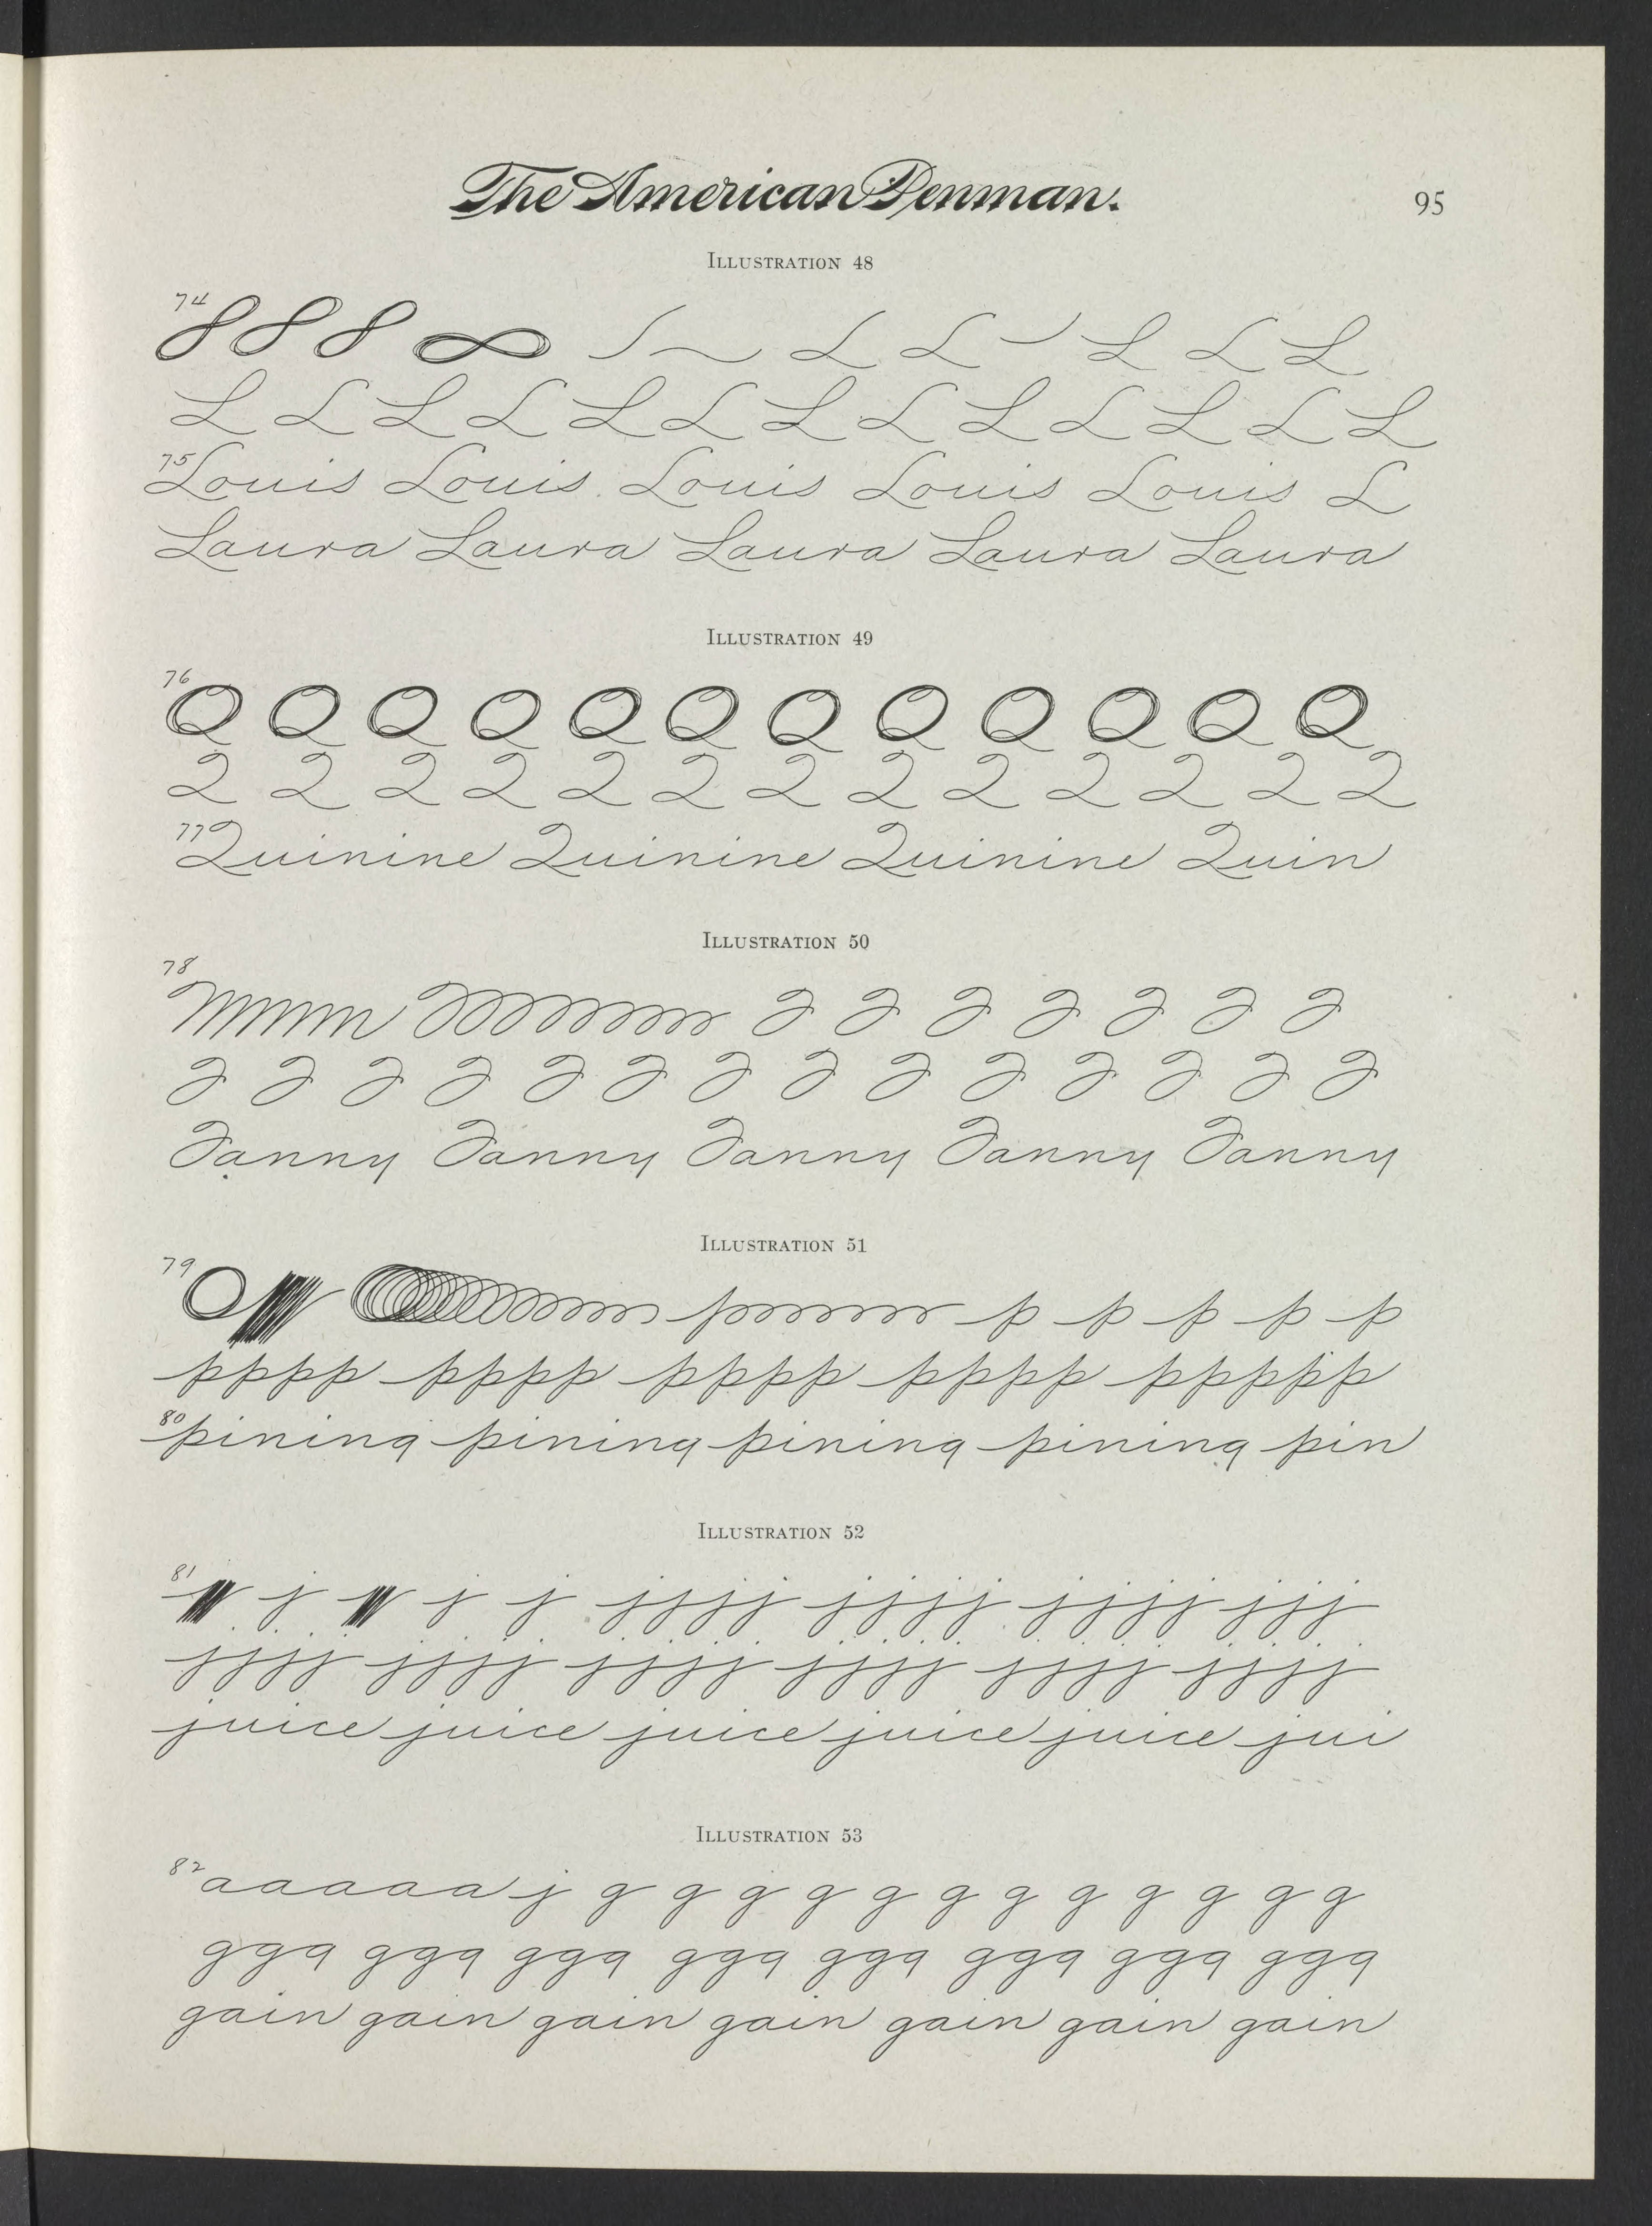 The American Penman.
95
Illustration 48
74 8 8 8 L L L L L
L L L L L L L L L L L L L
75 Louis Louis Louis Louis Louis L
Laura Laura Laura Laura Laura
Illustration 49
76 Q Q Q Q Q Q Q Q Q Q Q Q
Q Q Q Q Q Q Q Q Q Q Q Q Q
77 Quinine Quinine Quinine Quin
Illustration 50
78
J J J J J J J
J J J J J J J J J J J J J J
Janny Janny Janny Janny Janny
Illustration 51
79 O p p p p p
pppp pppp pppp pppp ppppp
80 pining pining pining pining pin
Illustration 52
81 j j j jjjj jjjj jjjj jjj
jjjj jjjj jjjj jjjj jjjj jjjj
juice juice juice juice juice jui
Illustration 53
82 aaaaaj g g g g g g g g g g g g
ggg ggg ggg ggg ggg ggg ggg ggg
gain gain gain gain gain gain gain